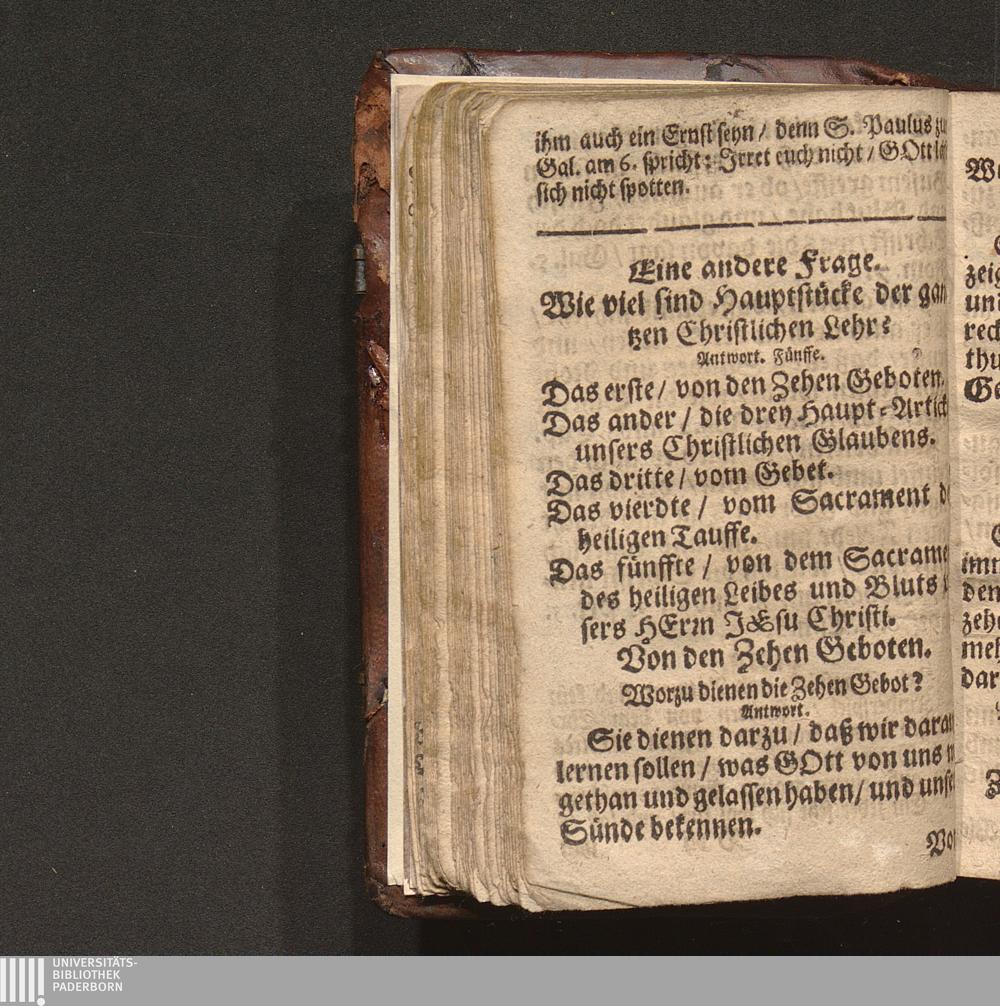 ihm auch ein Ernst seyn / denn S. Paulus zu
Gal. am 6. spricht: Irret euch nicht / GOtt
sich nicht spotten.
Eine andere Frage.
Wie viel sind Hauptstücke der gan
tzen Christlichen Lehr?
Antwort. Fünffe.
Das erste / von den Zehen Geboten.
Das ander / die drey Haupt-Artick
unsers Christlichen Glaubens.
Das dritte / vom Gebet.
Das vierdte / vom Sacrament d
heiligen Tauffe.
Das fünffte / von dem Sacrame
des heiligen Leibes und Bluts
sers HErrn JEsu Christi.
Von den Zehen Geboten.
Worzu dienen die Zehen Gebot?
Antwort.
Sie dienen darzu / daß wir daraus
lernen sollen / was GOtt von uns
gethan und gelassen haben / und unse
Sünde bekennen.
Vo
We
zeig
uni
rech
thu
Ge
imn
den
zehe
meh
dar
Z
UNIVERSITÄTS-
BIBLIOTHEK
PADERBORN